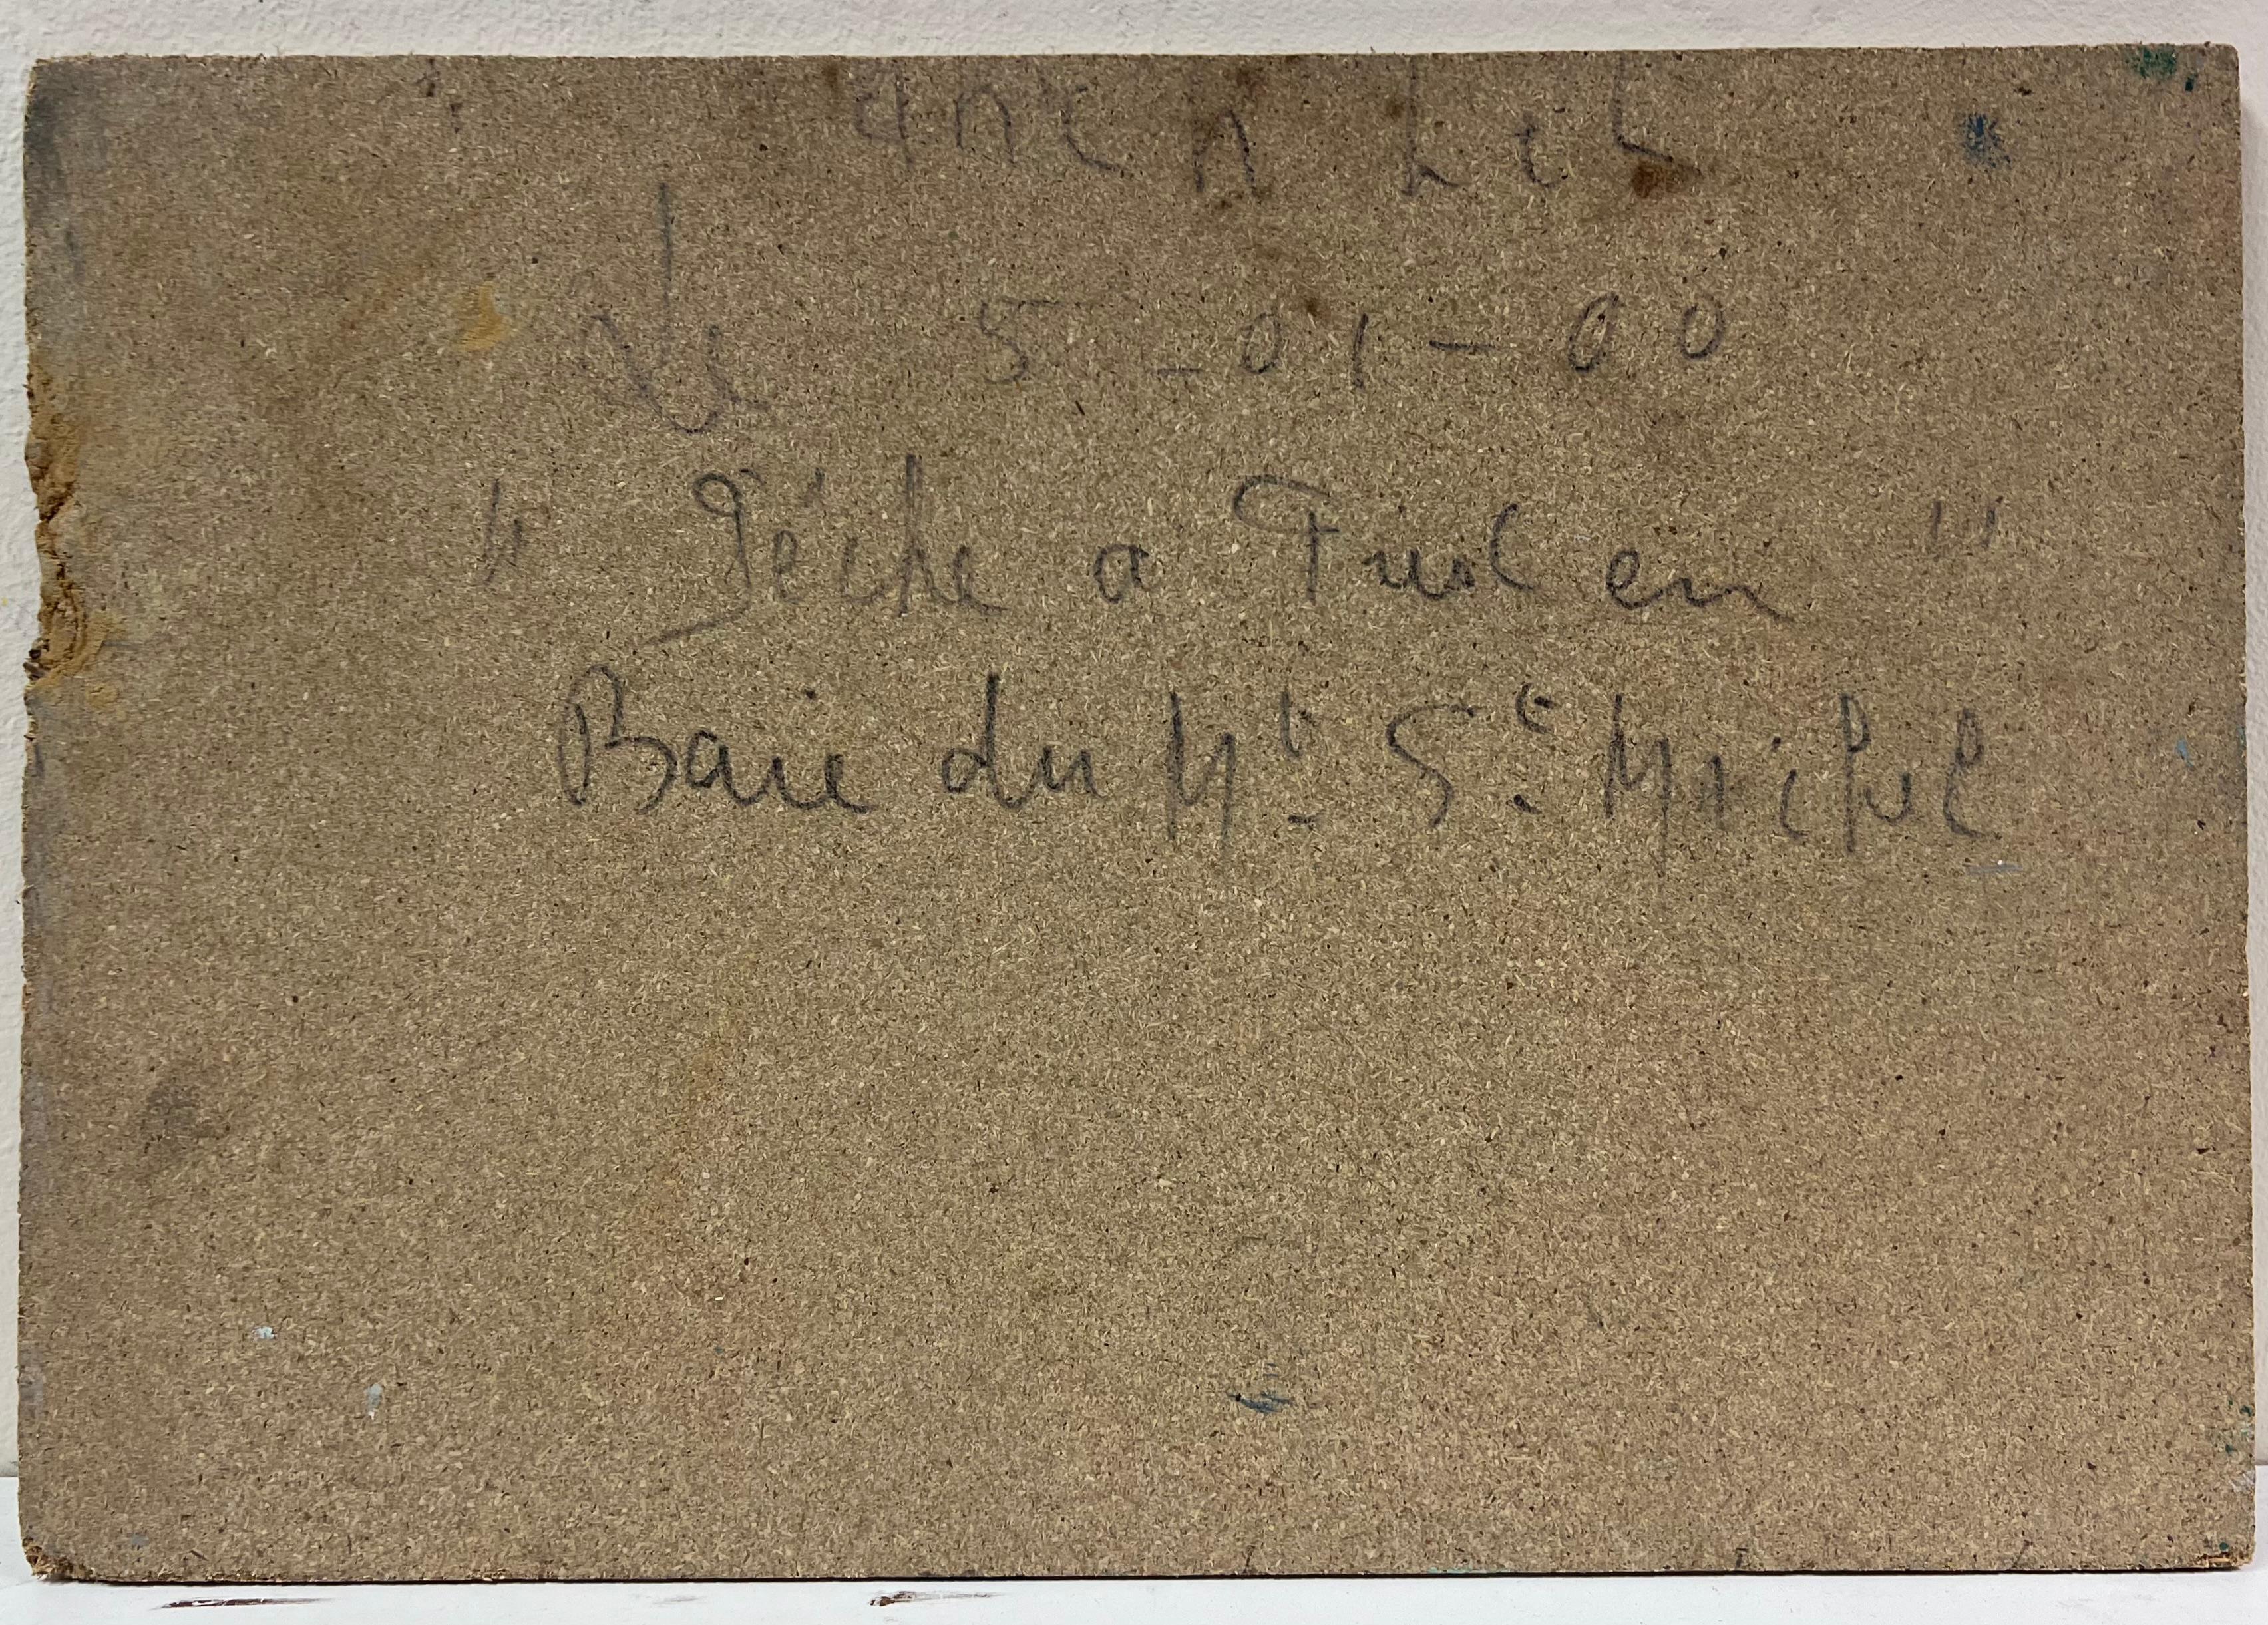 Le 5-01-00
" Pêche a Tusl en "
Baie du Mt St Michel